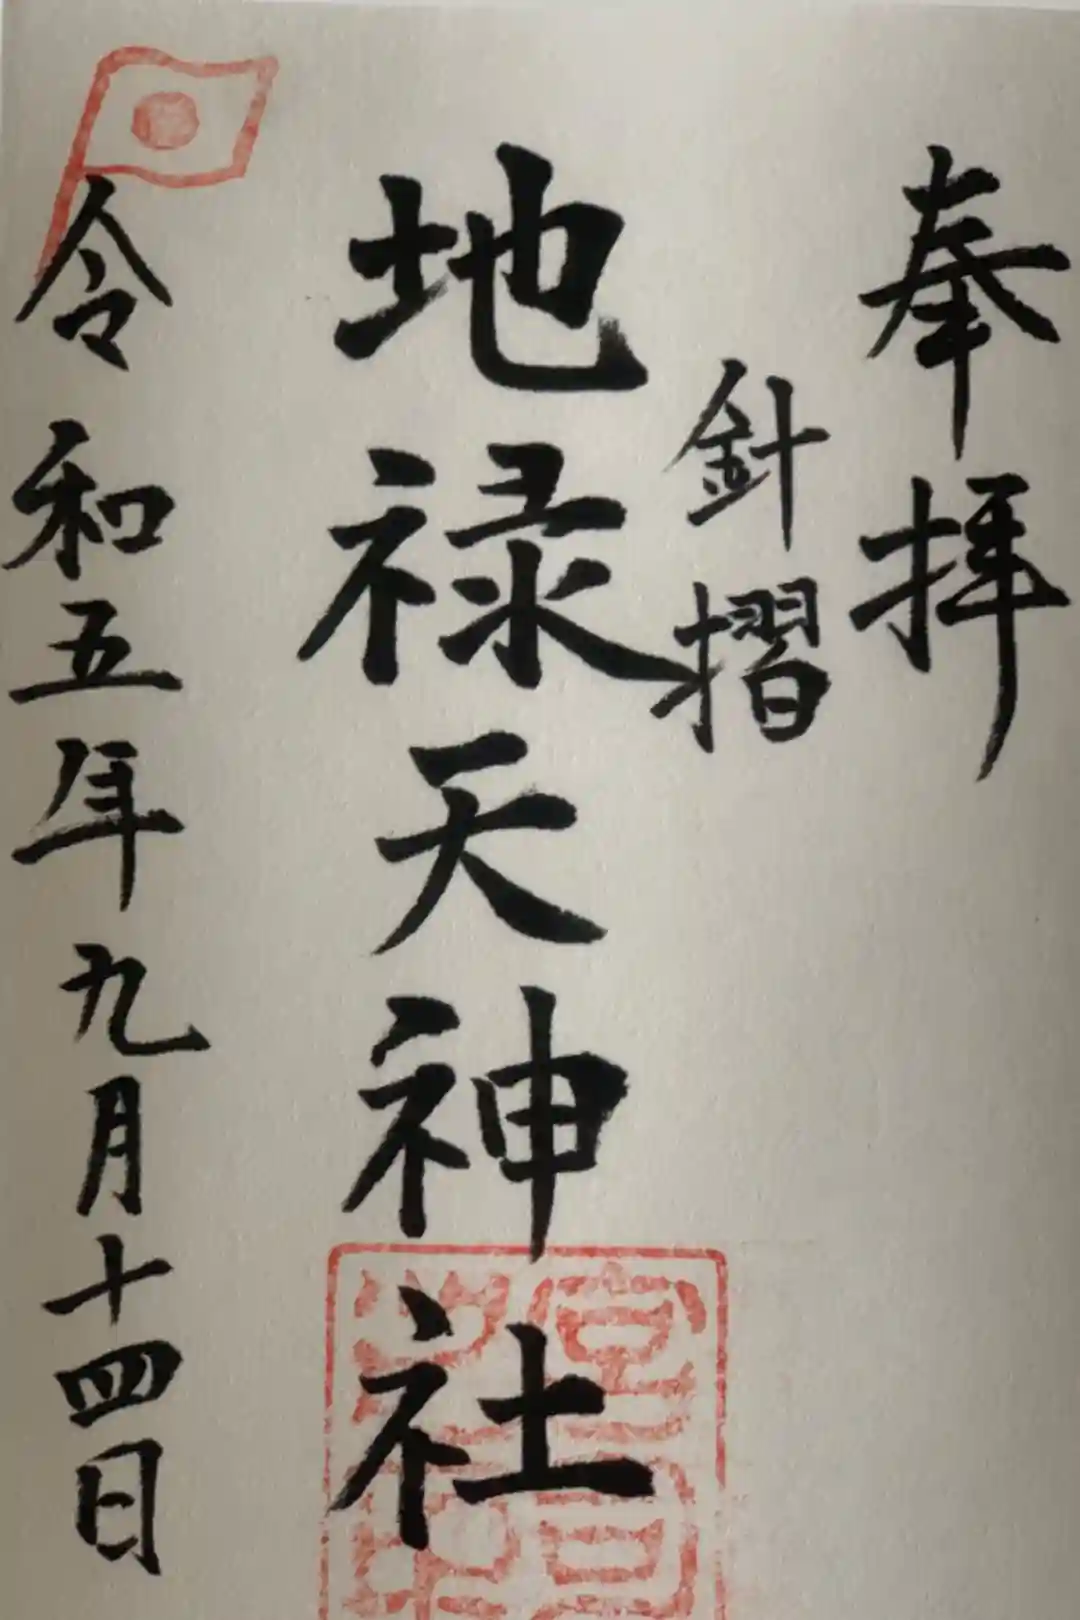 奉拝
針摺
地禄天神社
令和五年九月十四日